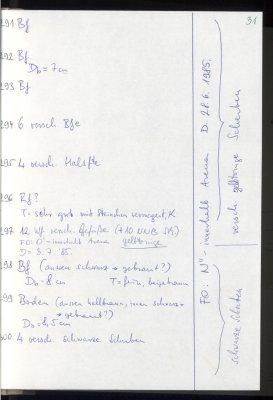 31
291 Bf
292 Bf
Db = 7 cm
293 Bf
294 6 versch. Bfe
295 4 versch. Halsfte
296 Rf?
T = sehr grob mit Steinchen vermagert,
297 12 versch. Gefäße
FO: innerhalb Arena gelbtonige
D = 3. 7. 85.
298 Bf (aussen schwarz → gebrannt?)
Db = 8 cm T = fein, beigebraun
299 Boden (aussen hellbraun, innen schwarz
→ gebrannt?)
Db = 8,5 cm
300. 4 versch. schwarze Scherben
FO: N" - innerhalb Arena D. 28. 6. 1985.
versch. gelbtonige Scherben
schwarze Scherben